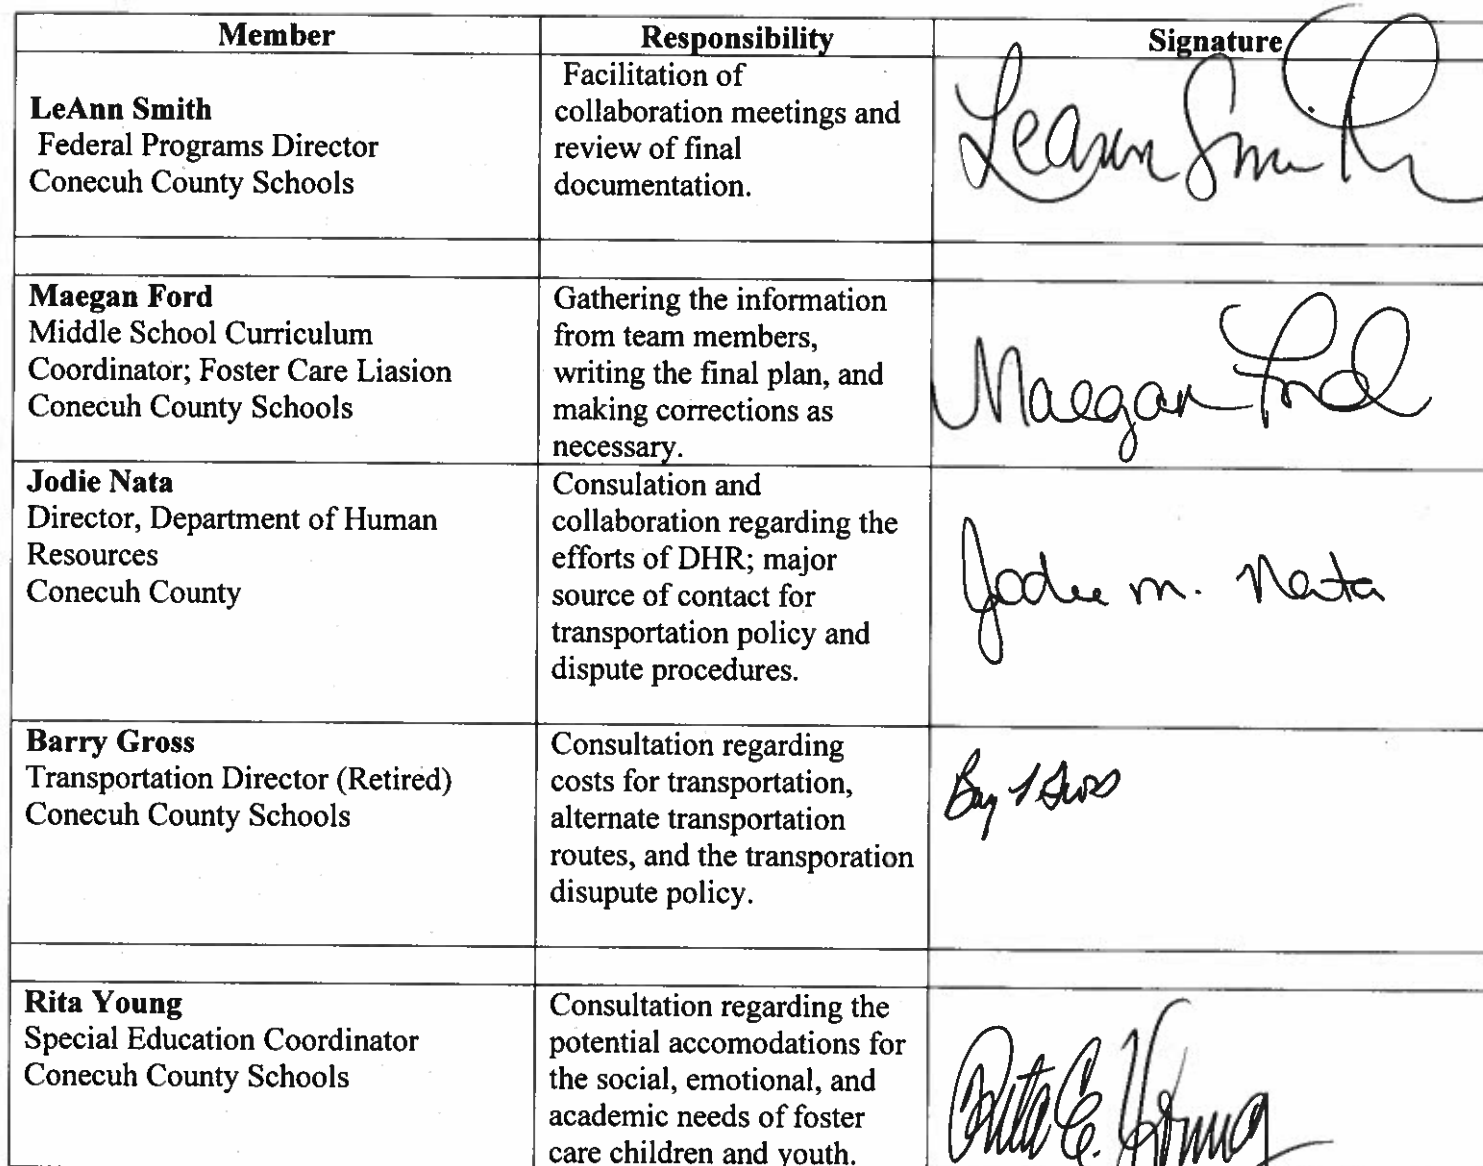 Member
Responsibility
Signature
LeAnn Smith
Federal Programs Director
Conecuh County Schools
Facilitation of
collaboration meetings and
review of final
documentation.
LeAnn Smith
Maegan Ford
Middle School Curriculum
Coordinator; Foster Care Liasion
Conecuh County Schools
Gathering the information
from team members,
writing the final plan, and
making corrections as
necessary.
Maegan Ford
Jodie Nata
Director, Department of Human
Resources
Conecuh County
Consulation and
collaboration regarding the
efforts of DHR; major
source of contact for
transportation policy and
dispute procedures.
Jodie M. Nata
Barry Gross
Transportation Director (Retired)
Conecuh County Schools
Consultation regarding
costs for transportation,
alternate transportation
routes, and the transporation
disupute policy.
Rita Young
Special Education Coordinator
Conecuh County Schools
Consultation regarding the
potential accomodations for
the social, emotional, and
academic needs of foster
care children and youth.
Rita E. Young